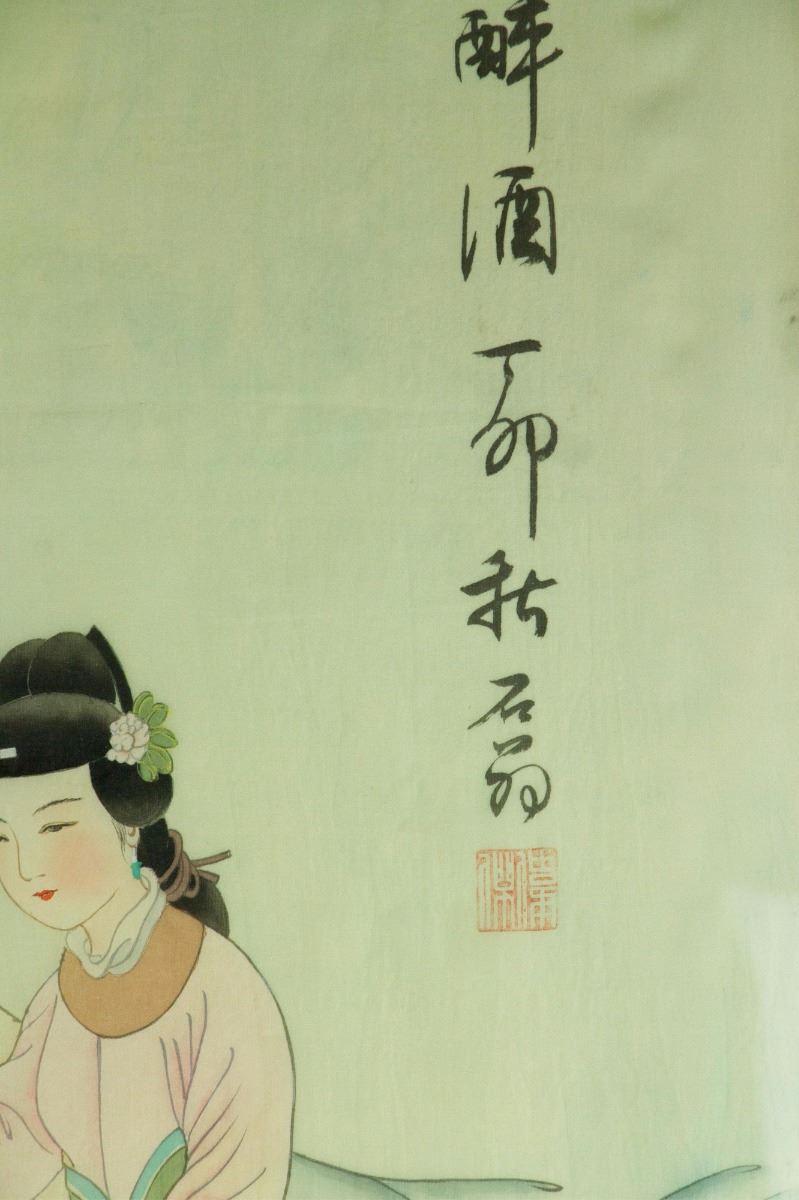 醉酒 丁卯秋 石翁